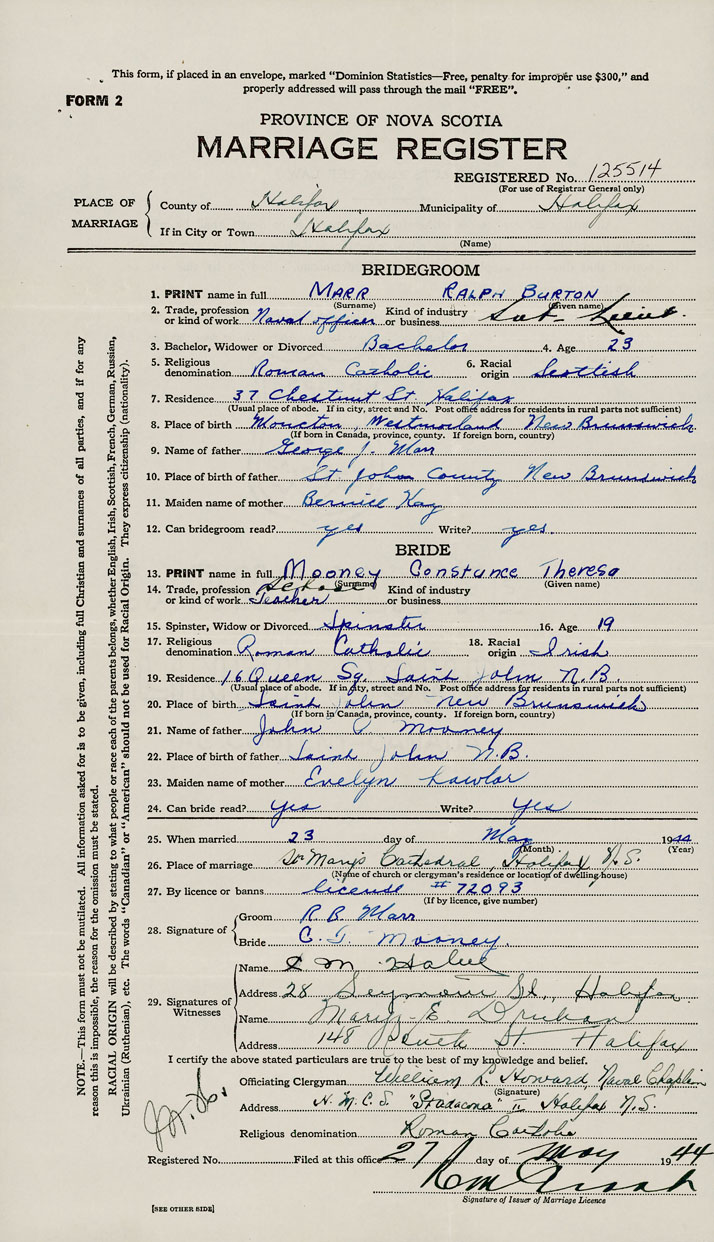 This form, if placed in an envelope, marked "Dominion Statistics—Free, penalty for improper use $300," and
properly addressed will pass through the mail "FREE".
FORM 2
PROVINCE OF NOVA SCOTIA
MARRIAGE REGISTER
REGISTERED No. 125514
(For use of Registrar General only)
PLACE OF MARRIAGE
County of Halifax Municipality of Halifax
If in City or Town Halifax
(Name)
BRIDEGROOM
1. PRINT name in full MARR RALPH BURTON
(Surname) (Given name)
2. Trade, profession or kind of work Naval officer Kind of industry or business Sub-Lieut.
3. Bachelor, Widower or Divorced Bachelor 4. Age 23
5. Religious denomination Roman Catholic 6. Racial origin Scottish
7. Residence 37 Chestnut St. Halifax
(Usual place of abode. If in city, street and No. Post office address for residents in rural parts not sufficient)
8. Place of birth Moncton, Westmorland New Brunswick
(If born in Canada, province, county. If foreign born, country)
9. Name of father George J. Marr
10. Place of birth of father St John County New Brunswick
11. Maiden name of mother Bernice Kay
12. Can bridegroom read? yes Write? yes.
BRIDE
13. PRINT name in full Mooney Constance Theresa
(Surname) (Given name)
14. Trade, profession or kind of work School Teacher Kind of industry or business
15. Spinster, Widow or Divorced Spinster 16. Age 19
17. Religious denomination Roman Catholic 18. Racial origin Irish
19. Residence 16 Queen Sq. Saint John N.B.
(Usual place of abode. If in city, street and No. Post office address for residents in rural parts not sufficient)
20. Place of birth Saint John New Brunswick
(If born in Canada, province, county. If foreign born, country)
21. Name of father John Mooney
22. Place of birth of father Saint John N.B.
23. Maiden name of mother Evelyn Lawlor
24. Can bride read? Yes Write? Yes
25. When married 23 day of May 1944
(Month) (Year)
26. Place of marriage St. Mary's Cathedral, Halifax N.S.
(Name of church or clergyman's residence or location of dwelling house)
27. By licence or banns license #72093
(If by licence, give number)
28. Signature of
Groom R.B. Marr
Bride C.T. Mooney.
29. Signatures of Witnesses
Name M.
Address 28 Seymour St., Halifax
Name Mary E. Druhan
Address 148 South St. Halifax
I certify the above stated particulars are true to the best of my knowledge and belief.
Officiating Clergyman William L. Howard, Naval Chaplain
(Signature)
Address H.M.C.S. "Stadacona" II Halifax N.S.
Religious denomination Roman Catholic
Registered No. Filed at this office 27 day of May 1944
Signature of Issuer of Marriage Licence
[SEE OTHER SIDE]
NOTE.—This form must not be mutilated. All information asked for is to be given, including full Christian and surnames of all parties, and if for any
reason this is impossible, the reason for the omission must be stated.
RACIAL ORIGIN will be described by stating to what people or race each of the parents belongs, whether English, Irish, Scottish, French, German, Russian,
Ukrainian (Ruthenian), etc. The words "Canadian" or "American" should not be used for Racial Origin. They express citizenship (nationality).